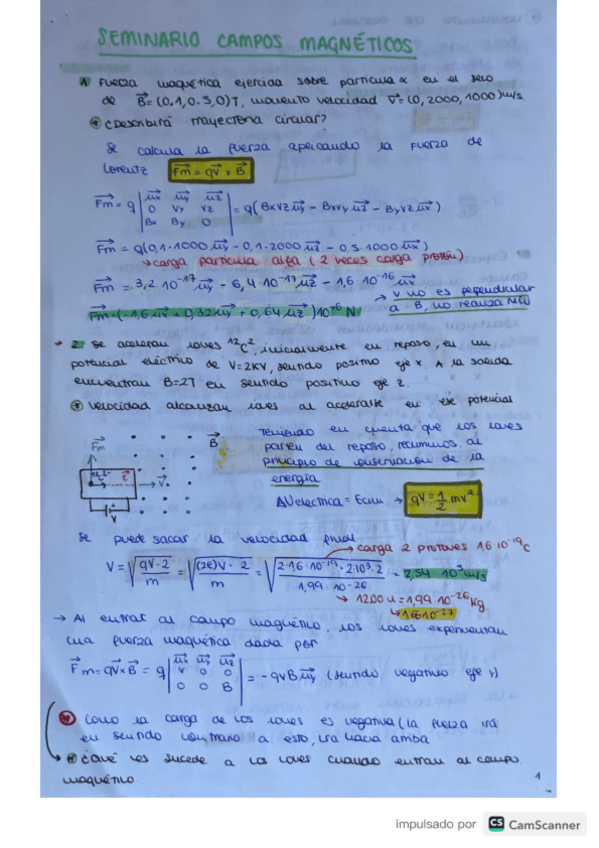 SEMINARIO CAMPOS MAGNÉTICOS
1 Fuerza magnética ejercida sobre partícula α en el seno
de B⃗=(0.1,0.5,0)T, momento velocidad v⃗=(0,2000,1000)m/s
* ¿Describirá trayectoria circular?
Se calcula la fuerza aplicando la Fuerza de
Lorentz F⃗m = qv⃗ x B⃗
F⃗m = q | u⃗x u⃗y u⃗z | 0 vy vz | Bx By 0 | = q(Bx vz u⃗y - Bx vy u⃗z - By vz u⃗x)
F⃗m = q(0,1·1000 u⃗y - 0,1·2000 u⃗z - 0,5·1000 u⃗x)
↳ carga partícula alfa (2 veces carga protón)
F⃗m = 3,2·10⁻¹⁷ u⃗y - 6,4·10⁻¹⁷ u⃗z - 1,6·10⁻¹⁶ u⃗x
→ v no es perpendicular
a B, no realiza MCU
F⃗m = (-1,6 u⃗x + 0,32 u⃗y + 0,64 u⃗z)10⁻¹⁶ N
2. Se aceleran iones ¹²C²⁻, inicialmente en reposo, en un
potencial eléctrico de V=2KV, sentido positivo eje x. A la salida
encuentran B=2T en sentido positivo eje z.
* Velocidad alcanzan iones al acelerarse en ese potencial
F⃗m
B⃗
v⃗
V
Teniendo en cuenta que los iones
parten del reposo, recurrimos al
principio de conservación de la
energía
ΔUelectrica = Ecin → qV = 1/2 mv²
Se puede sacar la velocidad final
→ carga 2 protones 1,6·10⁻¹⁹C
V = √(qV·2/m) = √((2e)V·2/m) = √(2·1,6·10⁻¹⁹·2·10³·2/1,99·10⁻²⁶) = 2,54·10⁵ m/s
→ 12,00 u = 1,99·10⁻²⁶ kg
↳ 1,66·10⁻²⁷
→ Al entrar al campo magnético, los iones experimentan
una fuerza magnética dada por
F⃗m = qv⃗xB⃗ = q | u⃗x u⃗y u⃗z | v 0 0 | 0 0 B | = -qvB u⃗y (sentido negativo eje y)
Como la carga de los iones es negativa (la fuerza irá
en sentido contrario a esto, irá hacia arriba
* ¿Qué les sucede a los iones cuando entran al campo
magnético
1
impulsado por CS CamScanner